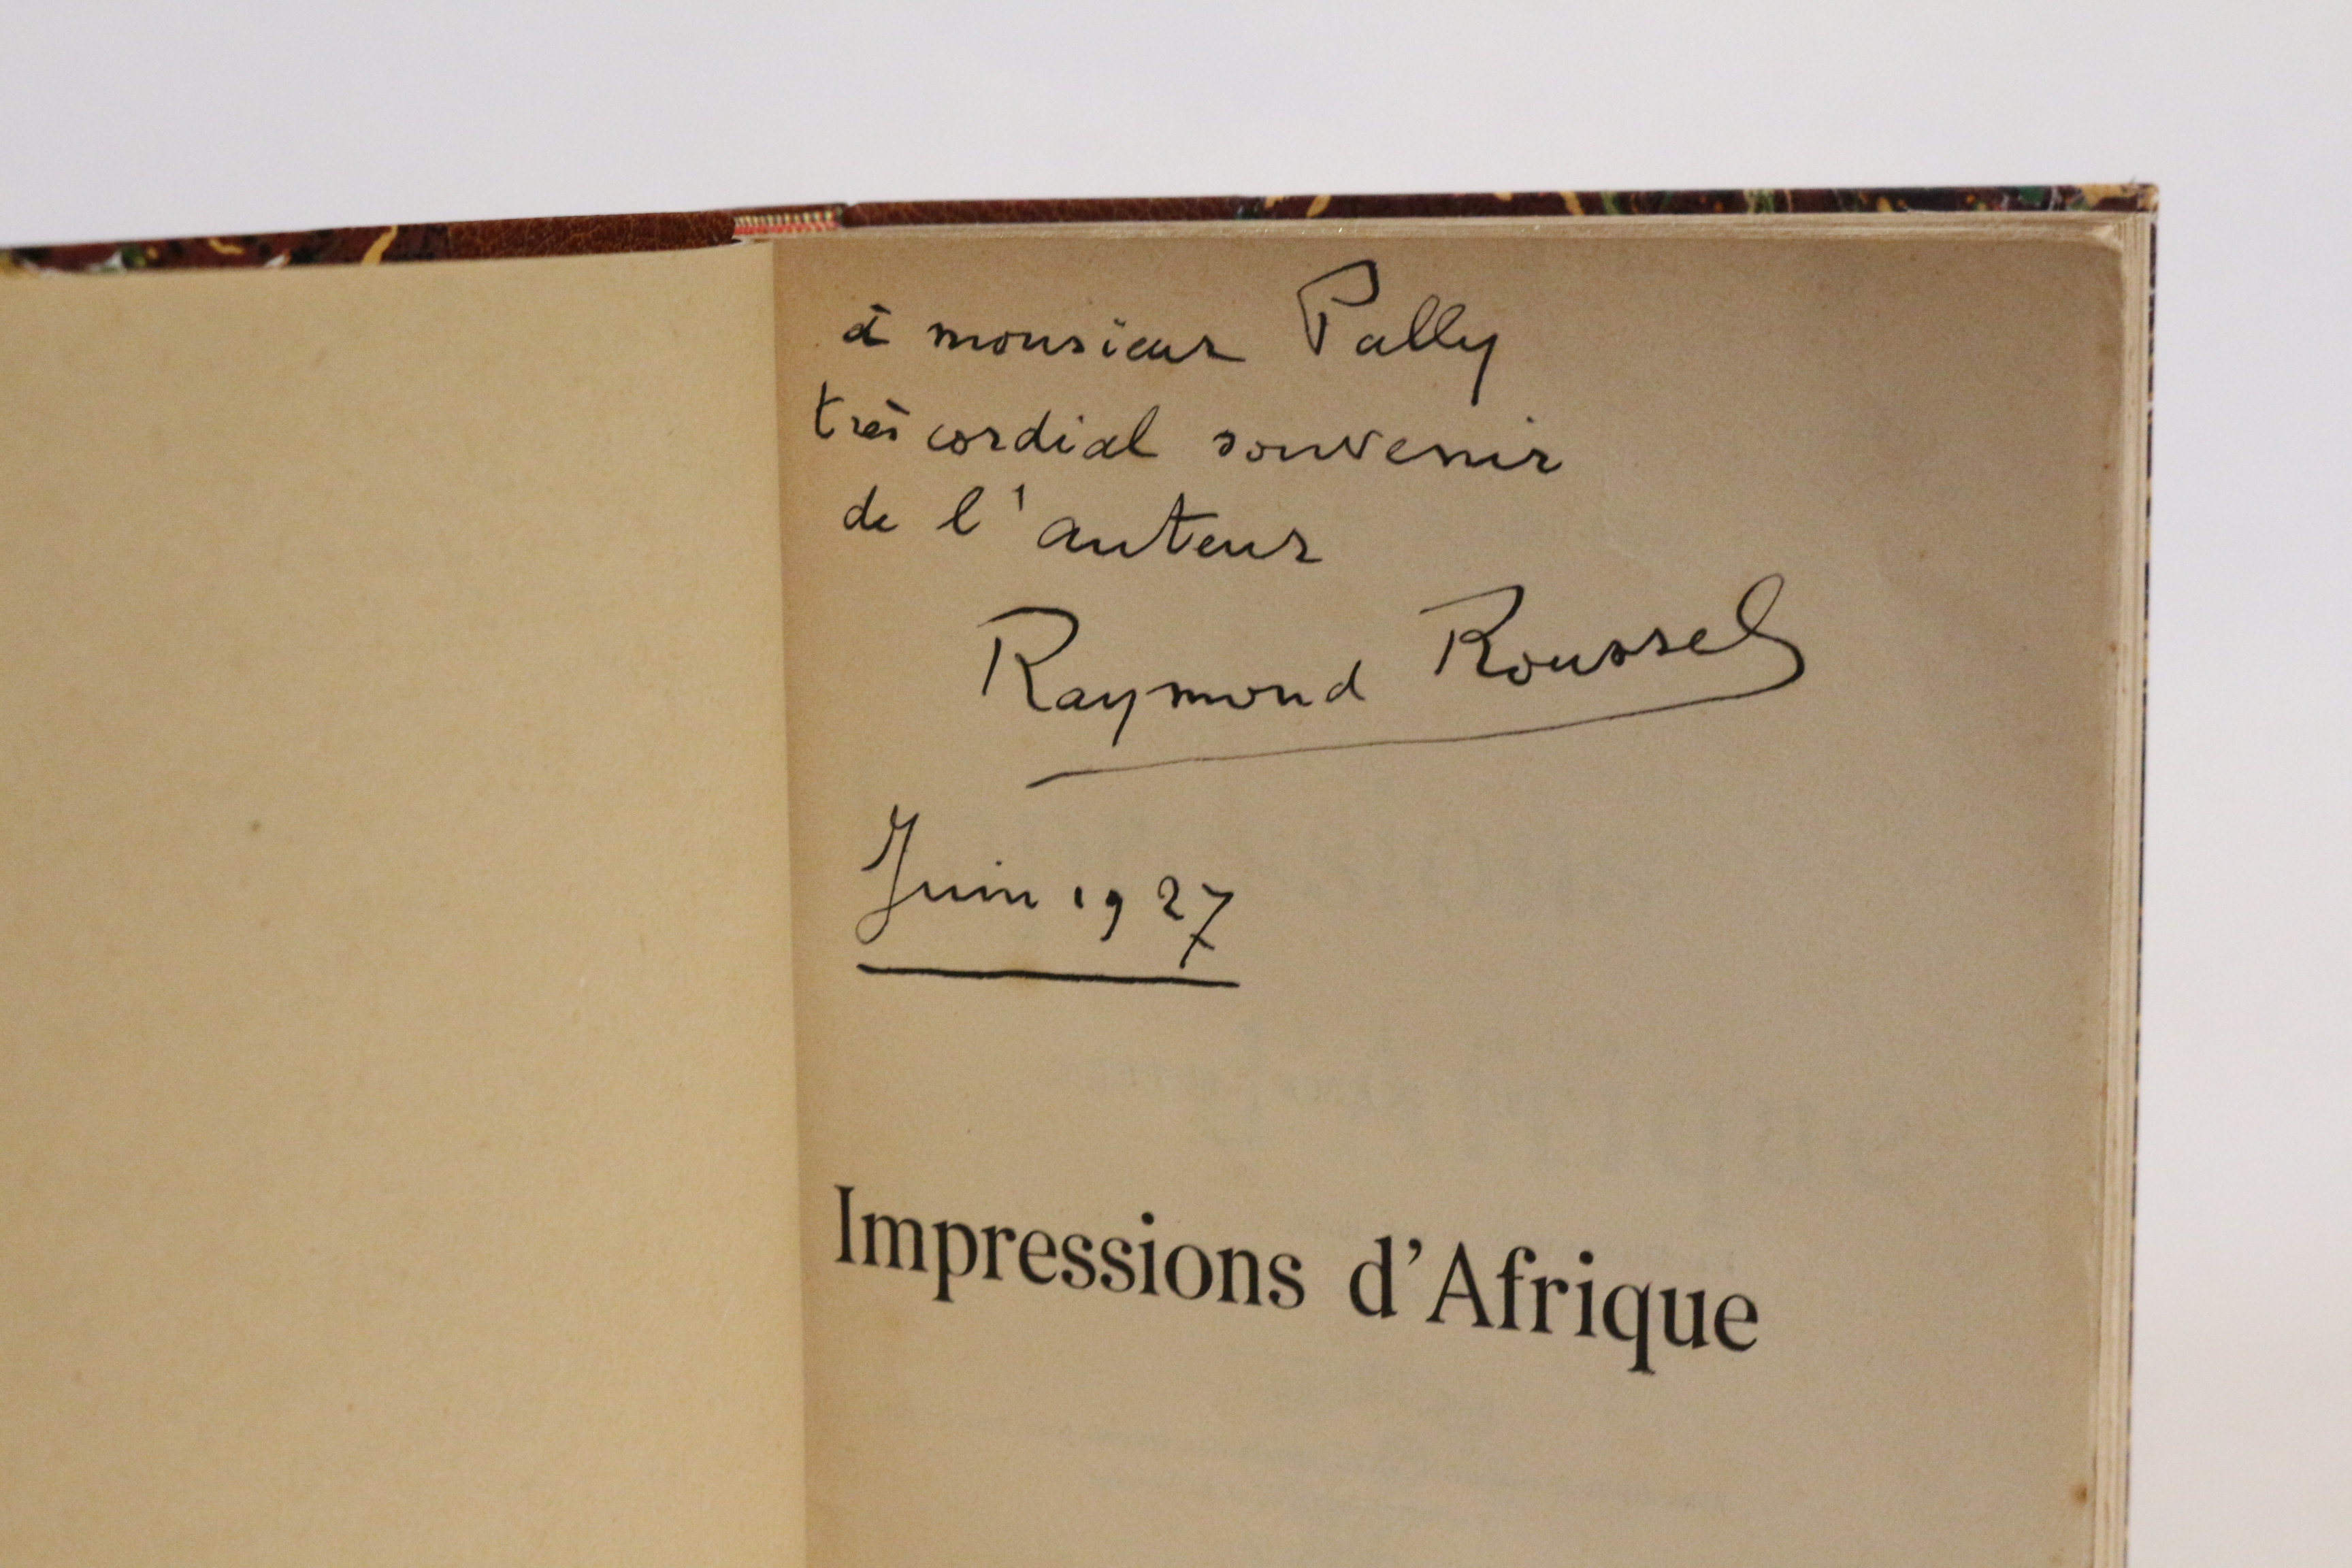 à monsieur Pally
très cordial souvenir
de l'auteur
Raymond Roussel
Juin 1927
Impressions d'Afrique